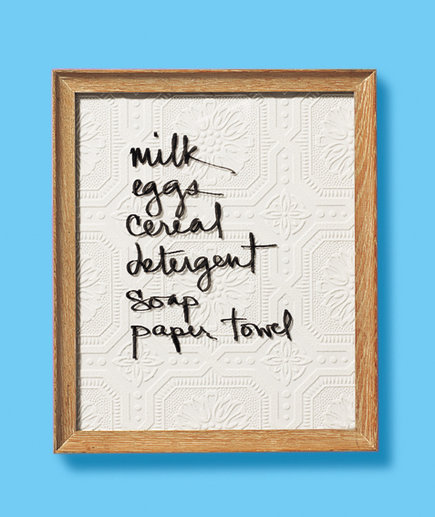 milk
eggs
cereal
detergent
soap
paper towel